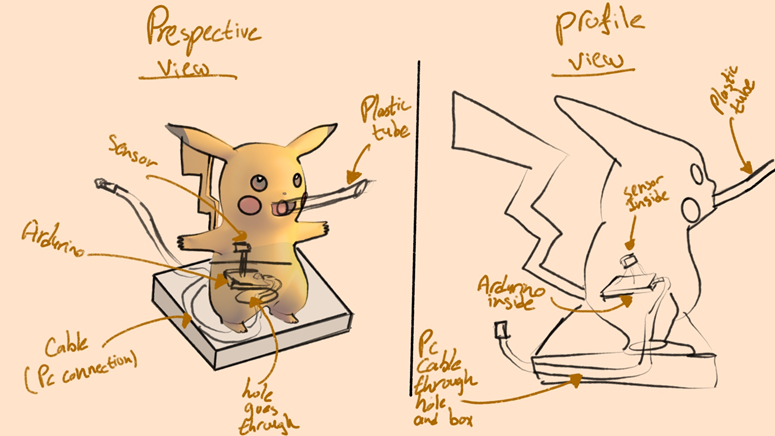 Prespective
view
Plastic
tube
Sensor
Arduino
Cable
(Pc connection)
hole
goes
through
profile
view
Plastic
tube
sensor
inside
Arduino
inside
Pc
Cable
through
hole
and box